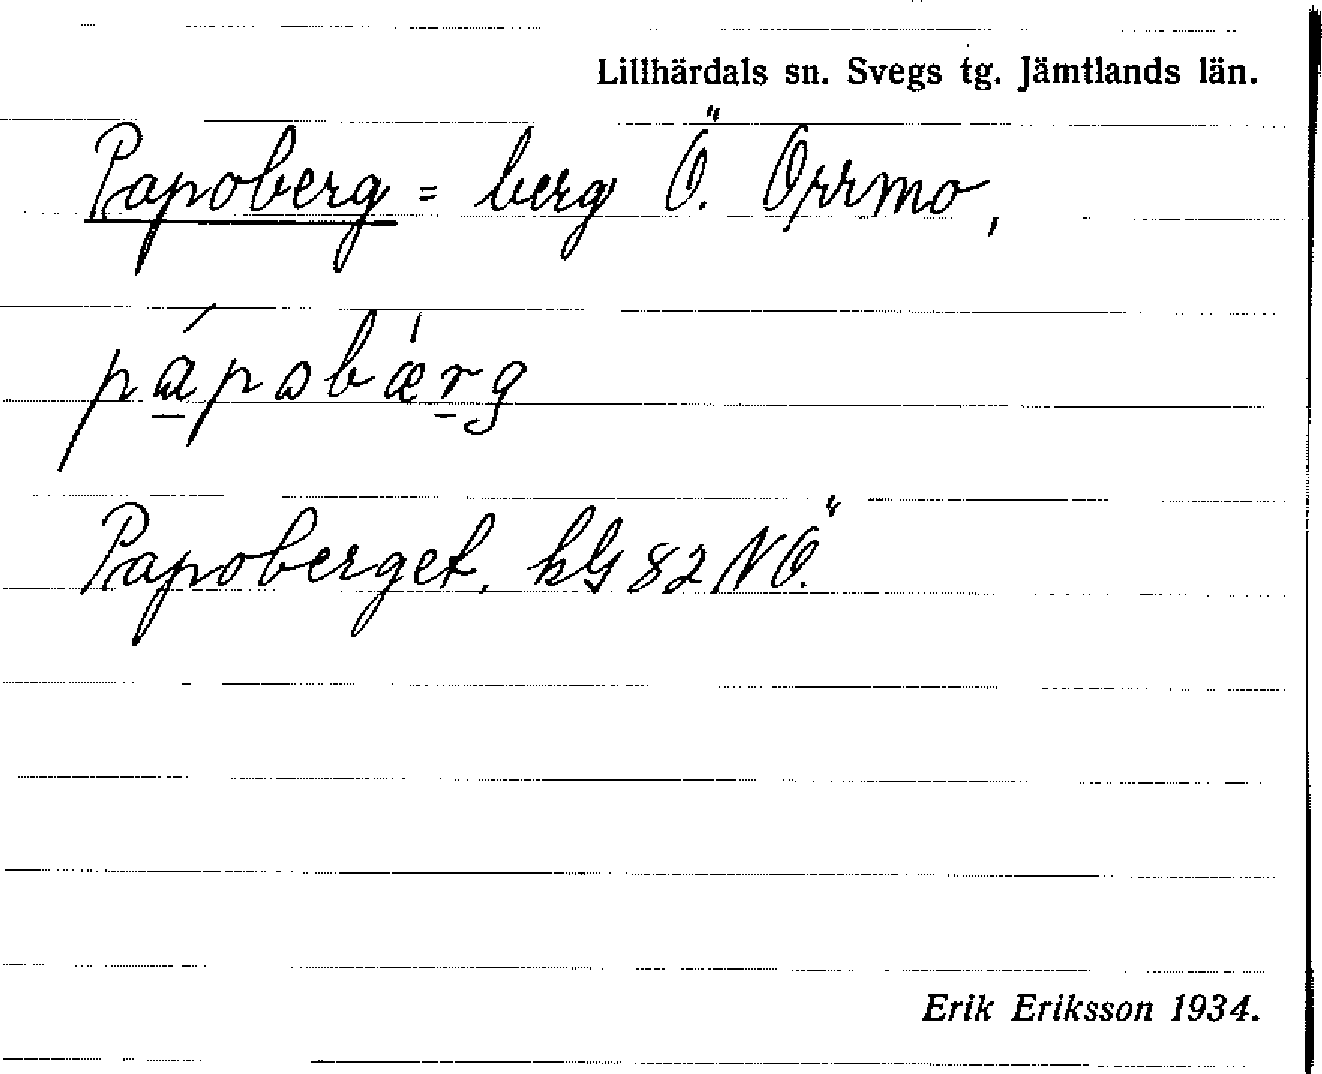 Lillhärdals sn. Svegs tg. Jämtlands län.
Papoberg = berg Ö. Orrmo,
pápɷbǽrg
Papoberget. kG 82 NÖ.
Erik Eriksson 1934.